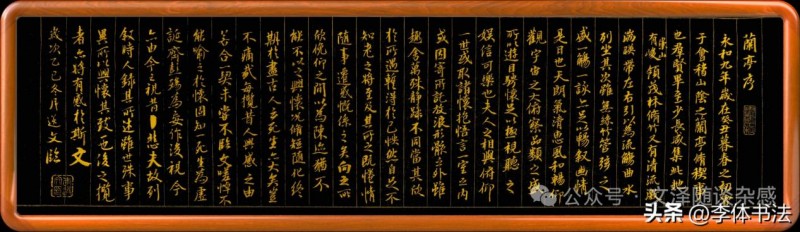 蘭亭序
永和九年歲在癸丑暮春之初會
于會稽山陰之蘭亭脩稧事
也羣賢畢至少長咸集此地
有崇山峻領茂林脩竹又有清流激
湍暎帶左右引以為流觴曲水
列坐其次雖無絲竹管弦之
盛一觴一詠亦足以暢敘幽情
是日也天朗氣清惠風和暢仰
觀宇宙之大俯察品類之盛
所以遊目騁懷足以極視聽之
娛信可樂也夫人之相與俯仰
一世或取諸懷抱悟言一室之內
或因寄所託放浪形骸之外雖
趣舍萬殊靜躁不同當其欣
於所遇蹔得於己怏然自足不
知老之將至及其所之既惓情
隨事遷感慨係之矣向之所
欣俛仰之閒以為陳迹猶不
能不以之興懷況脩短隨化終
期於盡古人云死生亦大矣豈
不痛哉每攬昔人興感之由
若合一契未嘗不臨文嗟悼不
能喻之於懷固知一死生為虛
誕齊彭殤為妄作後之視今
亦由今之視昔悲夫故列
敘時人錄其所述雖世殊事
異所以興懷其致一也後之攬
者亦將有感於斯文
歲次乙巳冬月文臨
公众号·文泽随谈杂感
头条@李体书法